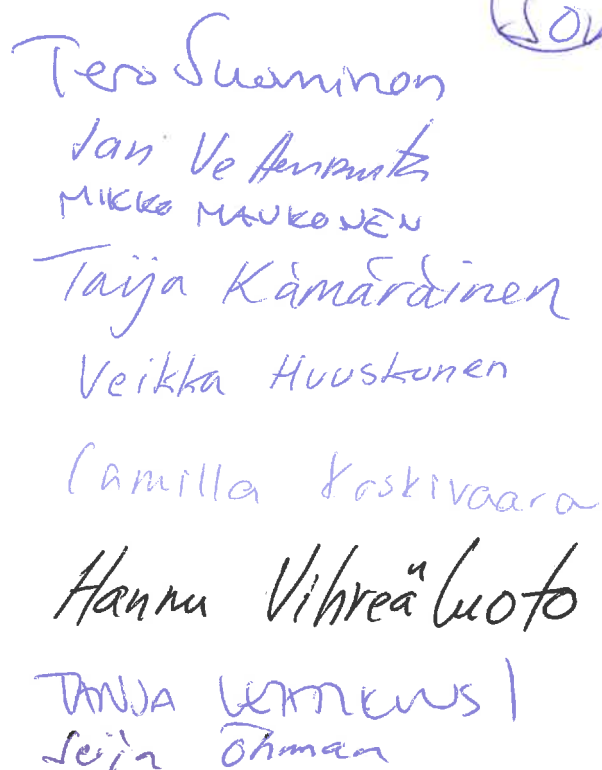 Tero Suominen
Jan
MIKKO MAUKONEN
Taija Kämäräinen
Veikka Huuskonen
Camilla Koskivaara
Hannu Vihreäluoto
TANJA
Seija Öhman